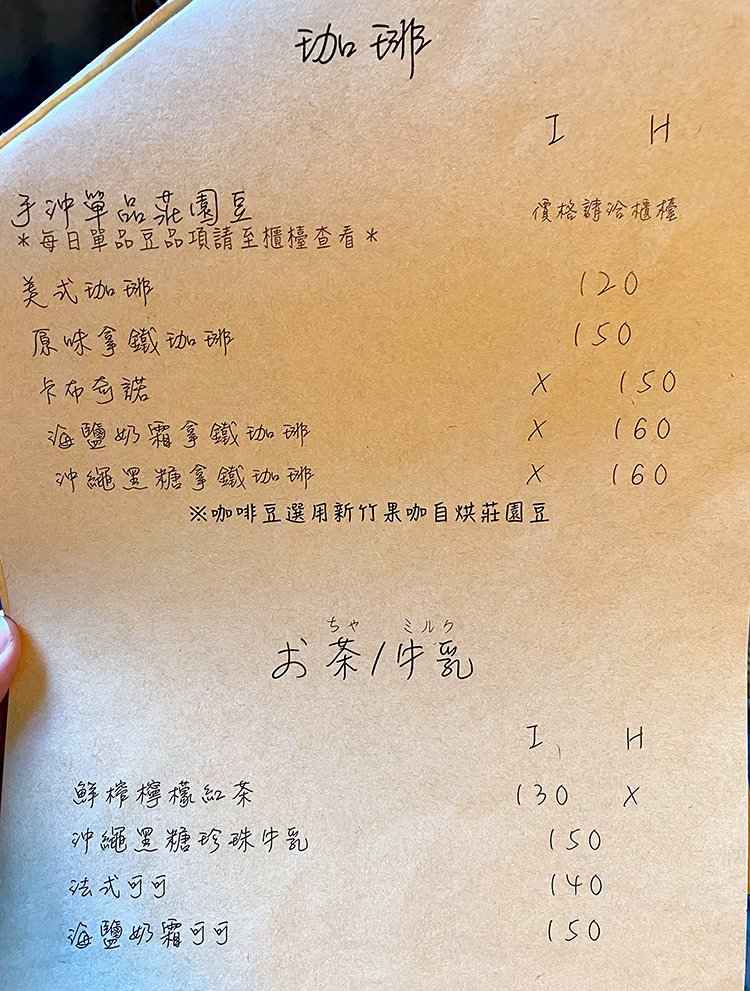 珈琲
I H
手沖單品莊園豆 價格請洽櫃檯
*每日單品豆品項請至櫃檯查看*
美式珈琲 120
原味拿鐵珈琲 150
卡布奇諾 X 150
海鹽奶霜拿鐵珈琲 X 160
沖繩黑糖拿鐵珈琲 X 160
※咖啡豆選用新竹果咖自烘莊園豆
ちゃ ミルク
お茶/牛乳
I H
鮮榨檸檬紅茶 130 X
沖繩黑糖珍珠牛乳 150
法式可可 140
海鹽奶霜可可 150